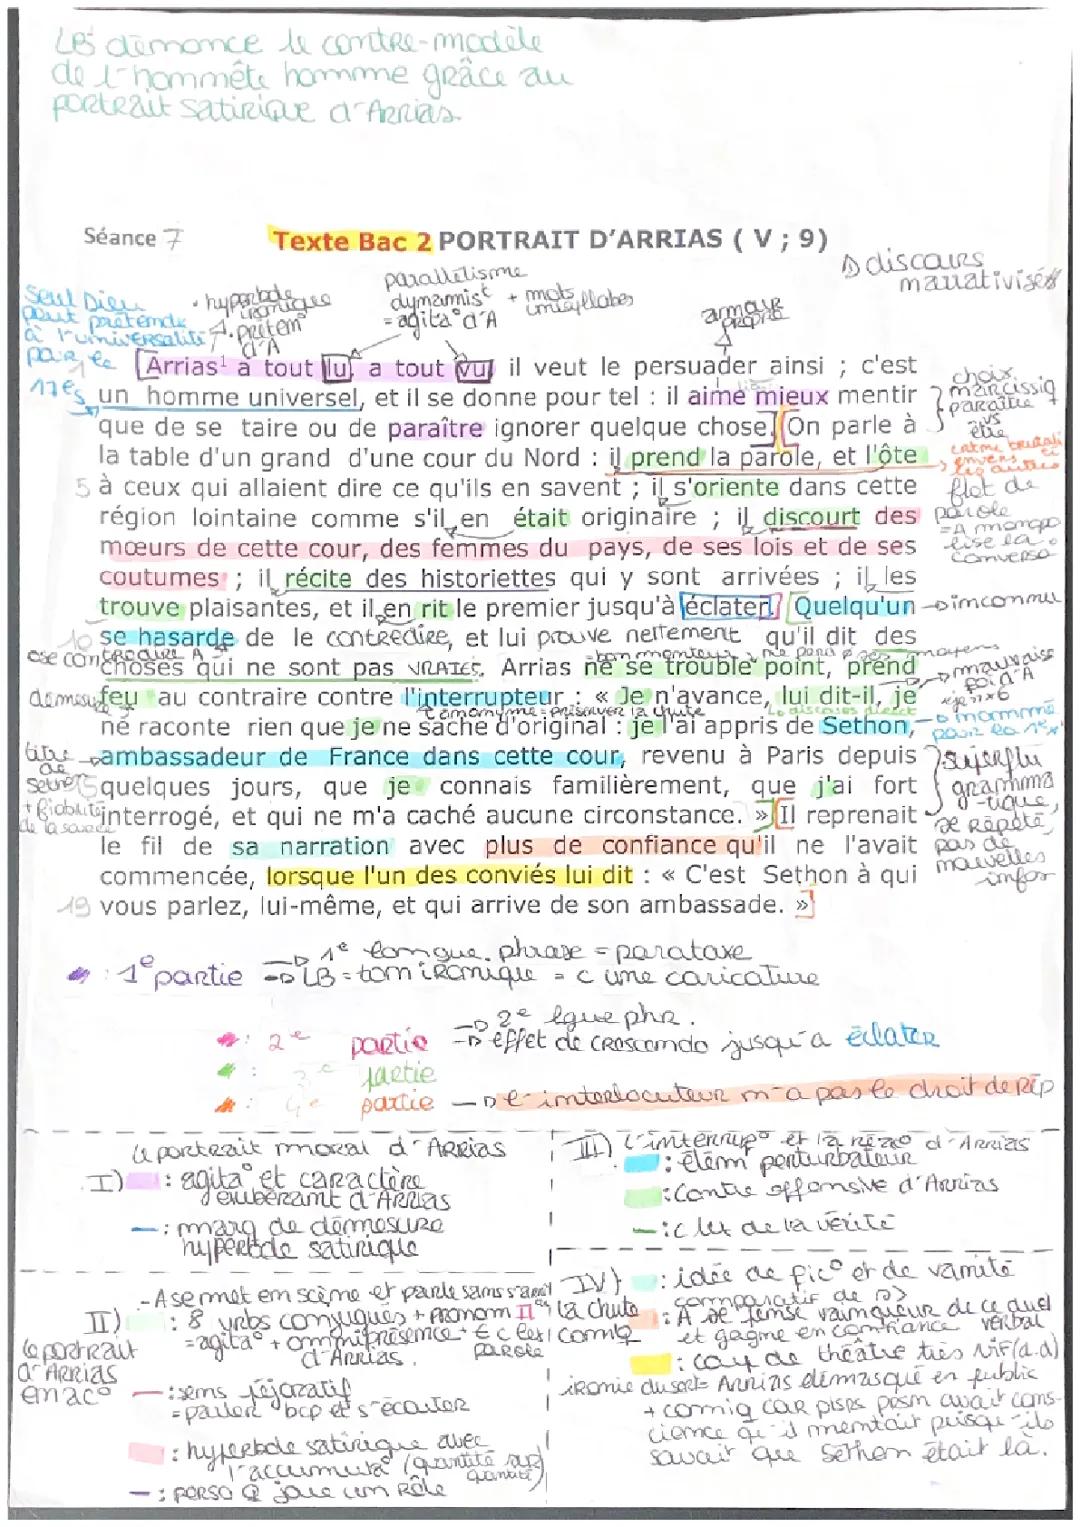 LB dénonce le contre-modèle
de l'honnête homme grâce au
portrait satirique d'Arrias.
Séance 7
Texte Bac 2 PORTRAIT D'ARRIAS ( V ; 9)
discours
narrativisés
parallélisme
dynamist + mots
= agita° d'A
Seul Dieu
peut prétendre
à l'universalité
par le
17es
hyperbole
ironique
prétent°
d'A
[Arrias¹ a tout lu, a tout vu, il veut le persuader ainsi ; c'est
un homme universel, et il se donne pour tel : il aime mieux mentir
que de se taire ou de paraître ignorer quelque chose.] [On parle à
la table d'un grand d'une cour du Nord : il prend la parole, et l'ôte
5 à ceux qui allaient dire ce qu'ils en savent ; il s'oriente dans cette
région lointaine comme s'il en était originaire ; il discourt des
mœurs de cette cour, des femmes du pays, de ses lois et de ses
coutumes ; il récite des historiettes qui y sont arrivées ; il les
trouve plaisantes, et il en rit le premier jusqu'à éclater.] [Quelqu'un
10 se hasarde de le contredire, et lui prouve nettement qu'il dit des
choses qui ne sont pas vraies. Arrias ne se trouble point, prend
feu au contraire contre l'interrupteur : « Je n'avance, lui dit-il, je
ne raconte rien que je ne sache d'original : je l'ai appris de Sethon,
ambassadeur de France dans cette cour, revenu à Paris depuis
15 quelques jours, que je connais familièrement, que j'ai fort
interrogé, et qui ne m'a caché aucune circonstance. »] [Il reprenait
le fil de sa narration avec plus de confiance qu'il ne l'avait
commencée, lorsque l'un des conviés lui dit : « C'est Sethon à qui
19 vous parlez, lui-même, et qui arrive de son ambassade. »]
choix
narcissiq
paraître
vs
être
flot de
parole
= A monopo
lise la
conversa°
inconnu
ose contredire A
mauvaise
foi d'A
discours direct
titre
de
+ fiabilité
de la source
superflu
gramma
-tique,
se répète,
pas de
nouvelles
infos
: 1e partie → 1e longue phrase = parataxe
→ LB = ton ironique = c une caricature
: 2e partie → 2e lgue phr.
→ effet de crescendo jusqu'à éclater
: 3e partie
: 4e partie → l'interlocuteur n'a pas le droit de rép
le portrait moral d'Arrias
I) : agita° et caractère
exubérant d'Arrias
— : marq de démesure
hyperbole satirique
II) le portrait
d'Arrias
en ac°
- A se met en scène et parle sans s'arrêt
: 8 vrbs conjugués + pronom Il
= agita° + omniprésence
d'Arrias.
— : sens péjoratif
= parler bcp et s'écouter
: hyperbole satirique avec
l'accumula° (quantité sur
quantité)
— : perso Q joue un rôle
III) L'interrup° et la réac° d'Arrias
: élém perturbateur
: Contre offensive d'Arrias
— : clut de la vérité
IV) la chute
comiq
: idée de fic° et de vanité
comparatif de
: A se pense vainqueur de ce duel
verbal
et gagne en confiance
: coup de théâtre très vif (d.d)
ironie du sort = Arrias démasqué en public
+ comiq car pers avait cons-
cience qu'il mentait puisqu'ils
savait que Sethon était là.